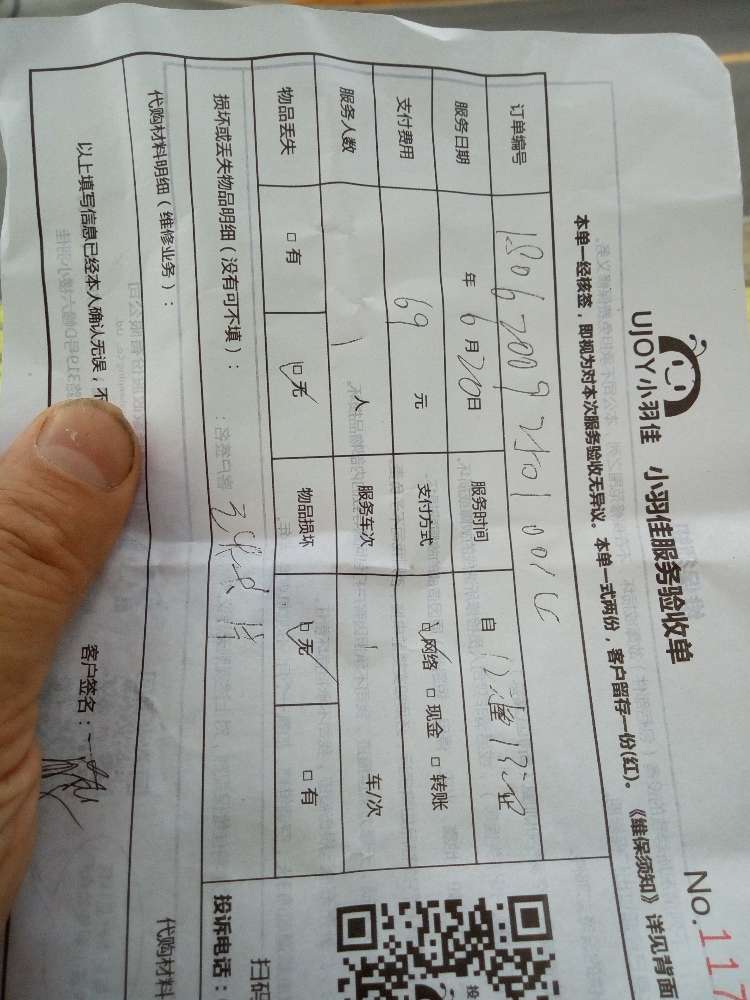 UJOY小羽佳 小羽佳服务验收单
No.117
本单一经核签，即视为对本次服务验收无异议。本单一式两份，客户留存一份(红)。《维保须知》详见背面
订单编号
服务日期 年 6月20日 服务时间 自
支付费用 69 元 支付方式 ☑网络 □现金 □转账
服务人数 1 人 服务车次 1 车/次
物品丢失 □有 ☑无 物品损坏 ☑无 □有
损坏或丢失物品明细（没有可不填）：
投诉电话：
扫码
代购材料明细（维修业务）：
代购材料
以上填写信息已经本人确认无误，不
客户签名：